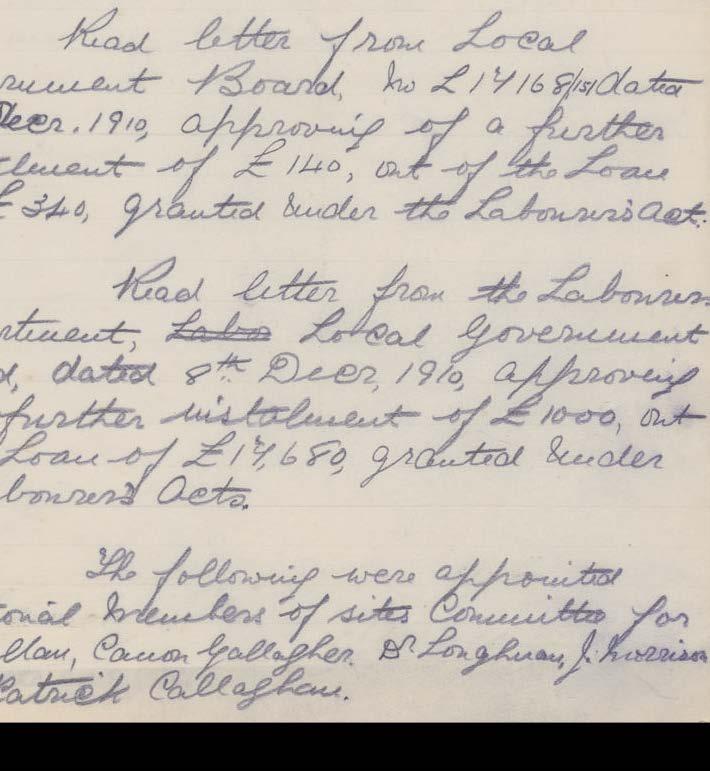 Read letter from Local
rnment Board, No L 17168/151 dated
Decr. 1910, approving of a further
tlment of £140, out of the Loan
£340, granted under the Labourers Act.
Read letter from the Labourers
rtment, Labo Local Government
d, dated 8th Decr, 1910, approving
further instalment of £1000, out
Loan of £17,680, granted under
bourers Acts.
The following were appointed
ional members of sites Committee for
llan, Canon Gallagher. Dr Loughnan, J. Morrison
Patrick Callaghan.